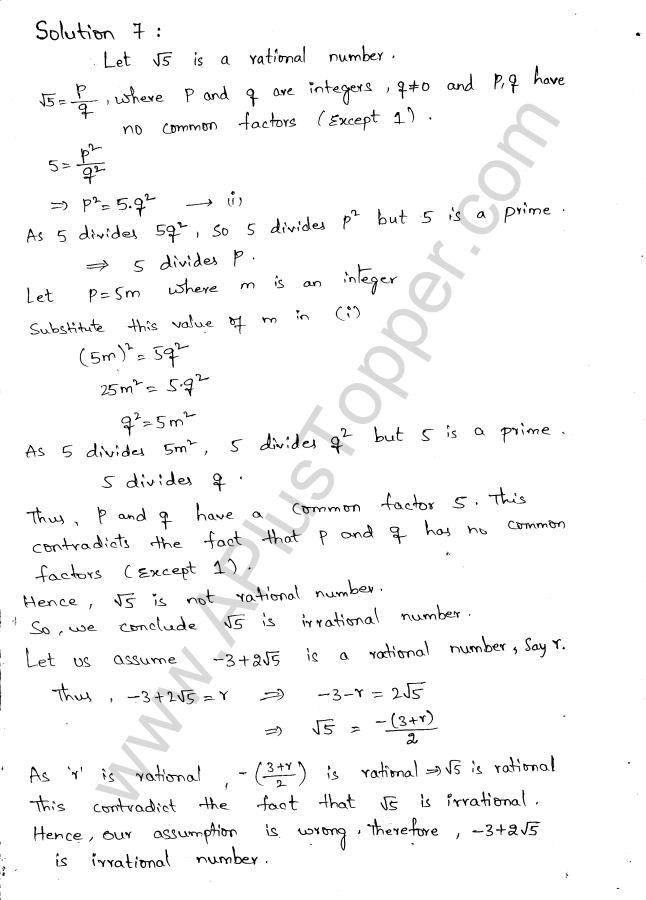 Solution 7 :
Let √5 is a rational number.
√5 = p/q, where p and q are integers, q≠0 and p,q have
no common factors (Except 1).
5 = p²/q²
⇒ p² = 5.q² → (i)
As 5 divides 5q², so 5 divides p² but 5 is a prime.
⇒ 5 divides p.
Let p = 5m where m is an integer
Substitute this value of m in (i)
(5m)² = 5q²
25m² = 5.q²
q² = 5m²
As 5 divides 5m², 5 divides q² but 5 is a prime.
5 divides q.
Thus, p and q have a common factor 5. This
contradicts the fact that p and q has no common
factors (Except 1).
Hence, √5 is not rational number.
So, we conclude √5 is irrational number.
Let us assume -3+2√5 is a rational number, say r.
Thus, -3+2√5 = r ⇒ -3-r = 2√5
⇒ √5 = -(3+r)/2
As 'r' is rational, -(3+r/2) is rational ⇒ √5 is rational
This contradict the fact that √5 is irrational.
Hence, our assumption is wrong. Therefore, -3+2√5
is irrational number.
www.APlusTopper.com